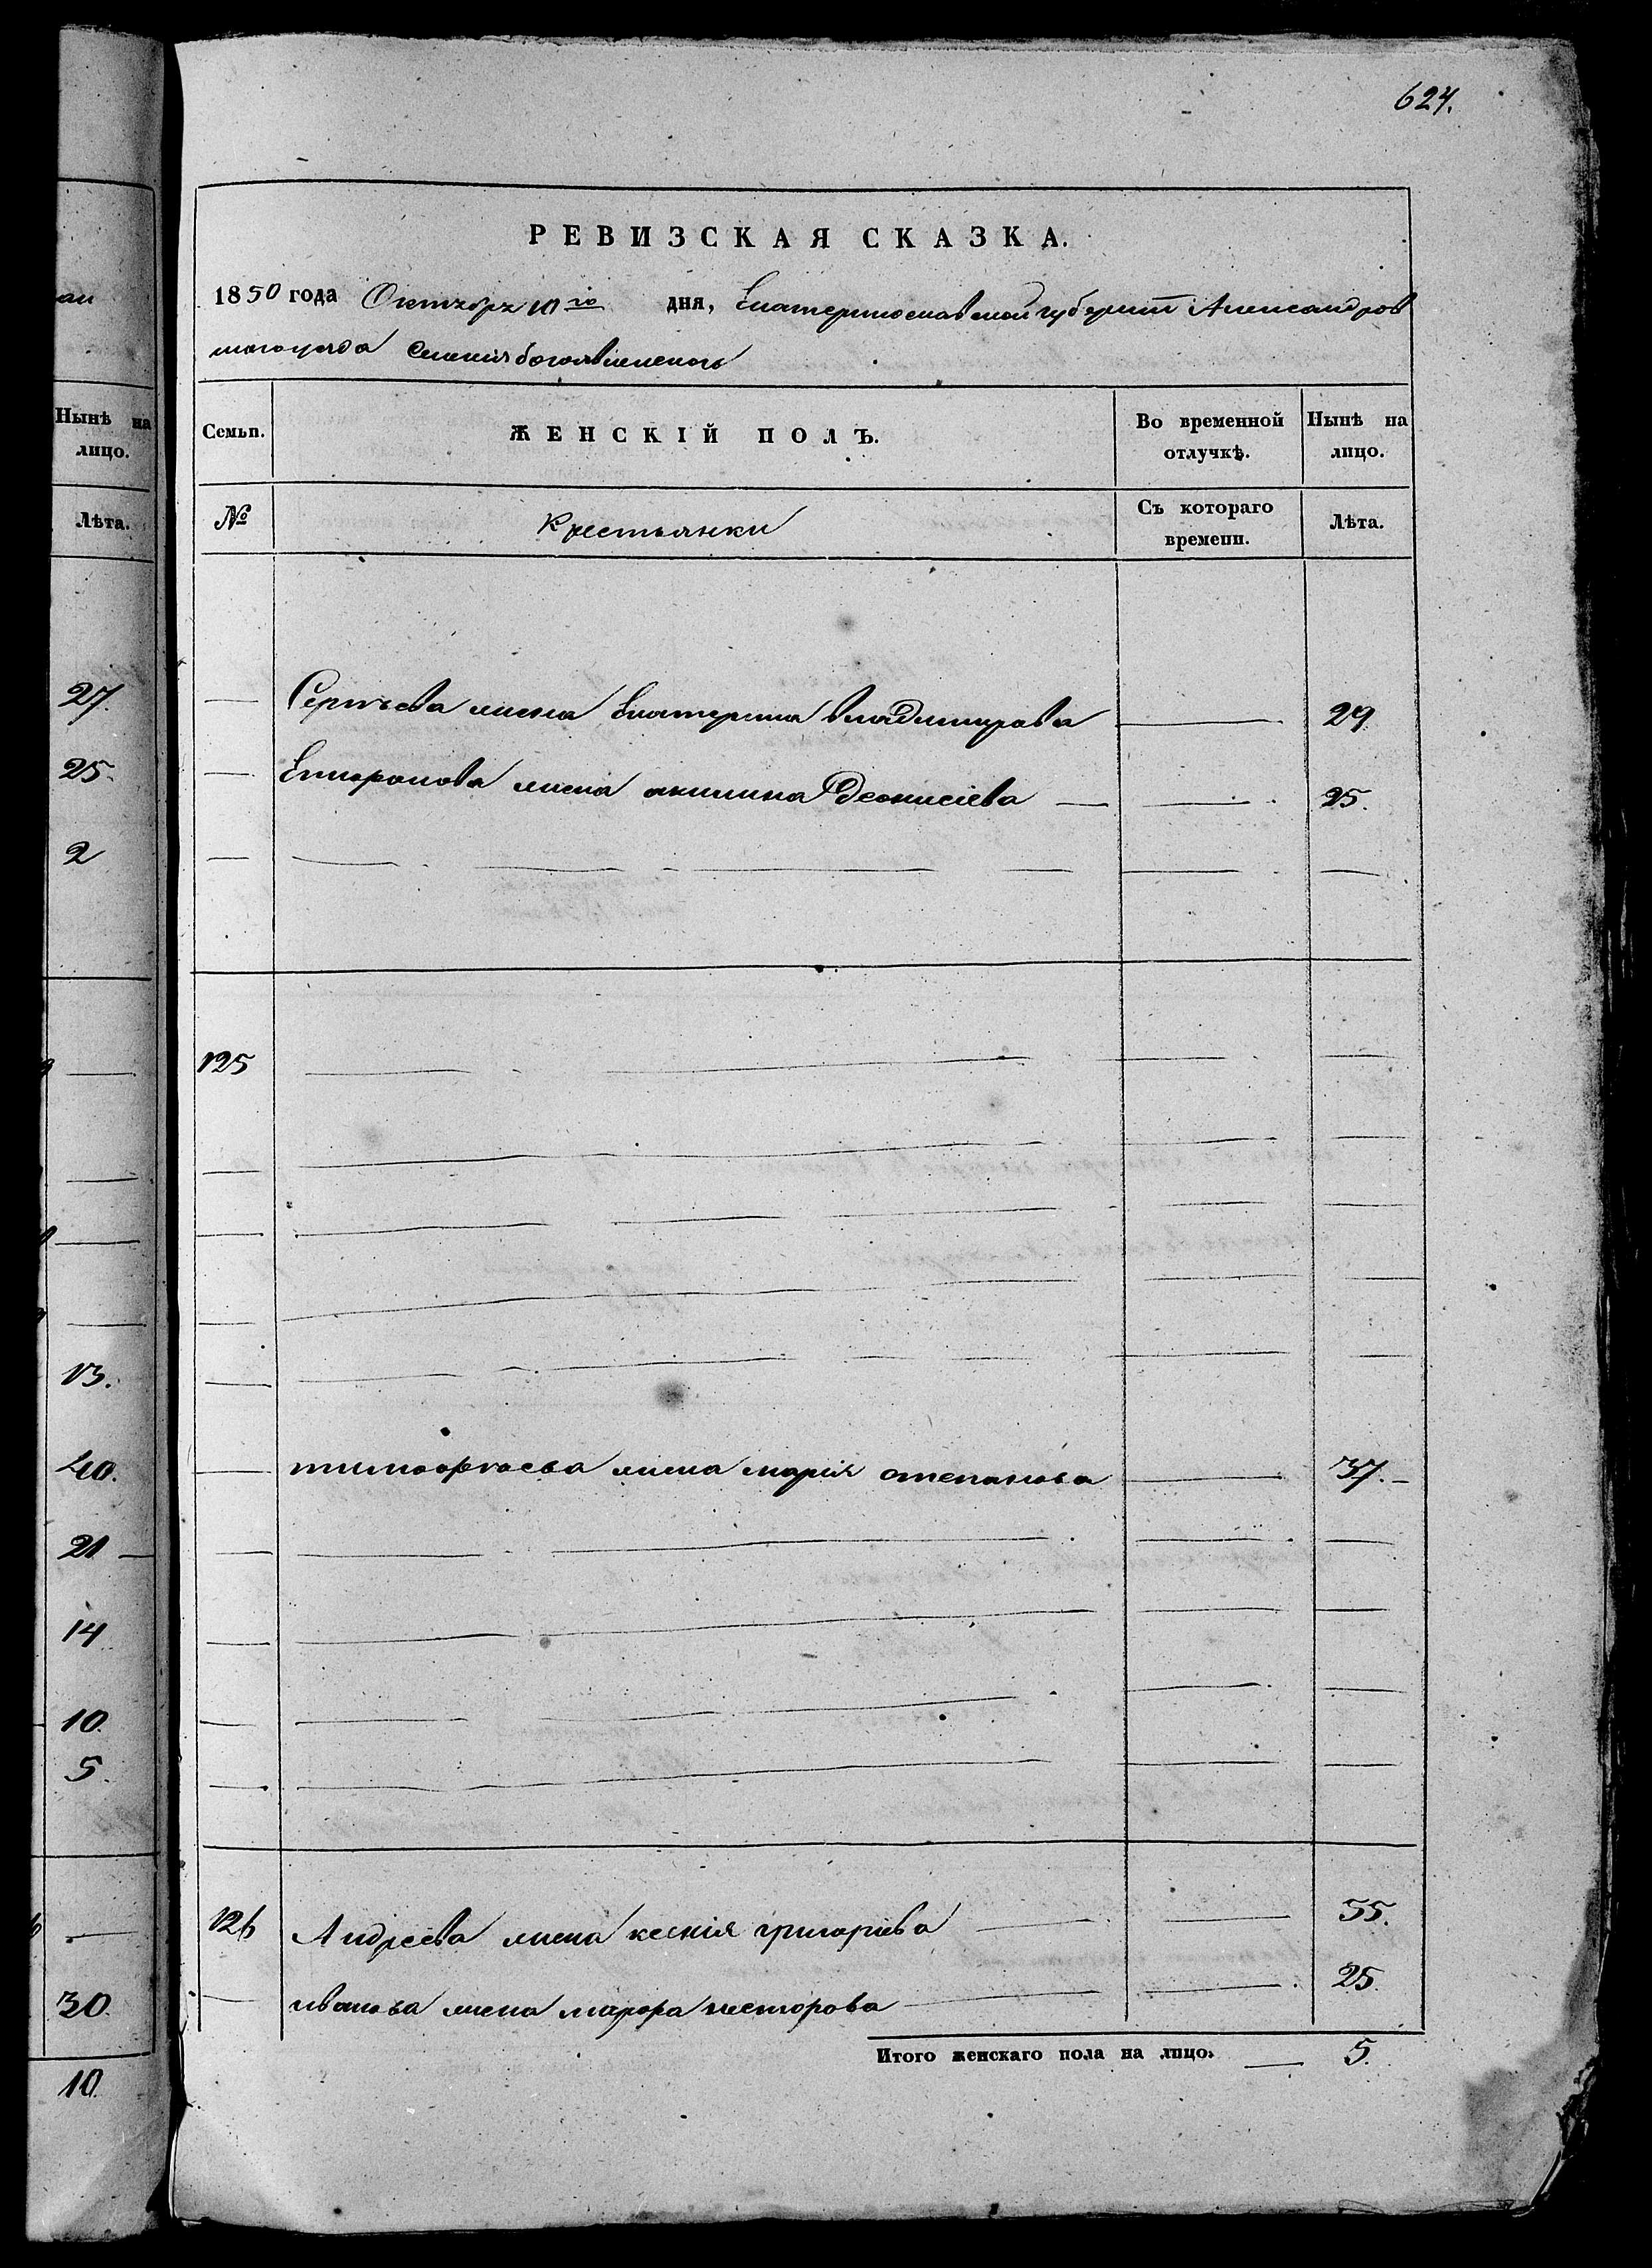 624.
РЕВИЗСКАЯ СКАЗКА.
1850 года Октября 10го дня, Екатеринославской губернiи Александров
скаго уезда Селенiя богоявленскаго
Семьи. ЖЕНСКIЙ ПОЛЪ. Во временной отлучкѣ. Нынѣ на лицо.
№ Крестьянки Съ котораго времени. Лѣта.
Сергѣева жена Екатерина владимирова 29
жена акилина Деонисiева 25.
125
тимофѣева жена марiя степанова 37.
126 Андреева жена ксенiя григорiева 55.
иванова жена марфа нестерова 25
Итого женскаго пола на лицо. 5.
Нынѣ на
лицо.
Лѣта.
27.
25.
2
13.
40.
21
14
10.
5.
30.
10.